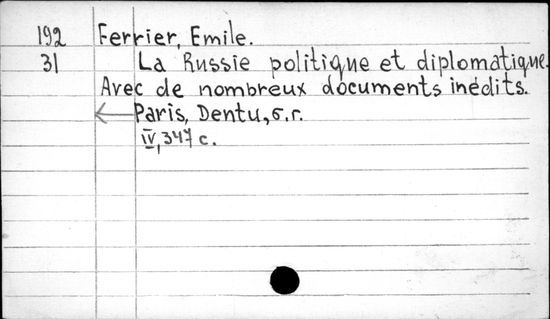 192 Ferrier, Emile.
31 La Russie politique et diplomatique.
Avec de nombreux documents inédits.
Paris, Dentu, б.г.
IV, 347 с.